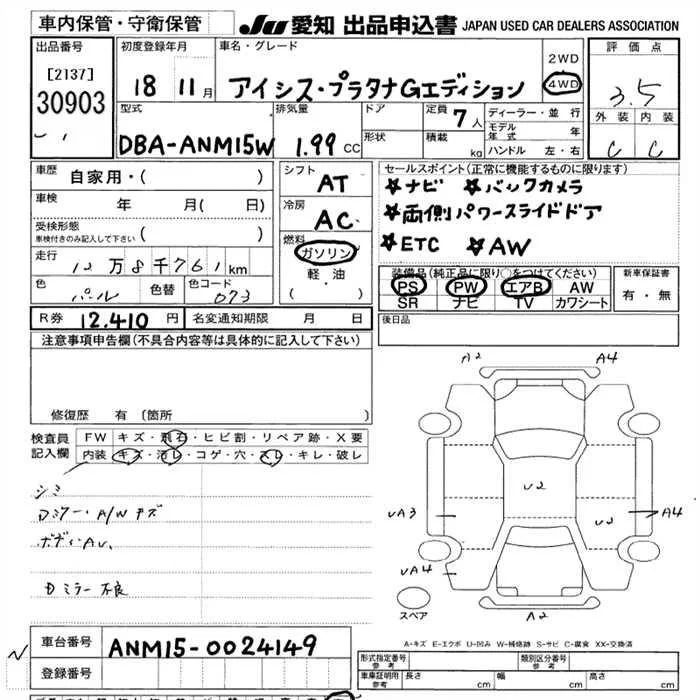 車内保管・守衛保管
JU 愛知 出品申込書 JAPAN USED CAR DEALERS ASSOCIATION
出品番号
[2137]
30903
初度登録年月
18 11 月
車名・グレード
アイシス・プラタナGエディション
2WD
4WD
評価点
3.5
外装 内装
C C
型式
DBA-ANM15W
排気量
1.99 CC
ドア
形状
定員 7 人
積載 kg
ディーラー・並行
モデル年式 年
ハンドル 左・右
車歴 自家用・( )
車検 年 月( 日)
受検形態
車検付きのみ記入して下さい ( )
走行 12 万 8 千 761 km
色 パール 色替 色コード 073
R券 12.410 円 名変通知期限 月 日
シフト
AT
冷房
AC
燃料
ガソリン
軽・油
( ・ )
セールスポイント(正常に機能するものに限ります)
★ナビ ★バックカメラ
★両側パワースライドドア
★ETC ★AW
装備品(純正品に限り○をつけてください)
PS PW エアB AW
SR ナビ TV カワシート
新車保証書
有・無
後日品
注意事項申告欄(不具合内容等は具体的に記入して下さい)
修復歴 有 (箇所 )
検査員記入欄
FW キズ・飛石・ヒビ割・リペア跡・X要
内装 キズ・汚レ・コゲ・穴・スレ・キレ・破レ
シミ
Dミラー・A/W キズ
ボディAU、
Dミラー不良
A2 A4
U2
UA3 U2 A4
UA4
スペア
A2
A-キズ E-エクボ U-凹み W-補修跡 S-サビ C-腐食 XX-交換済
車台番号 ANM15-0024149
登録番号
形式指定番号 参考
類別区分番号 参考
車庫証明用 参考 長さ cm 幅 cm 高さ cm